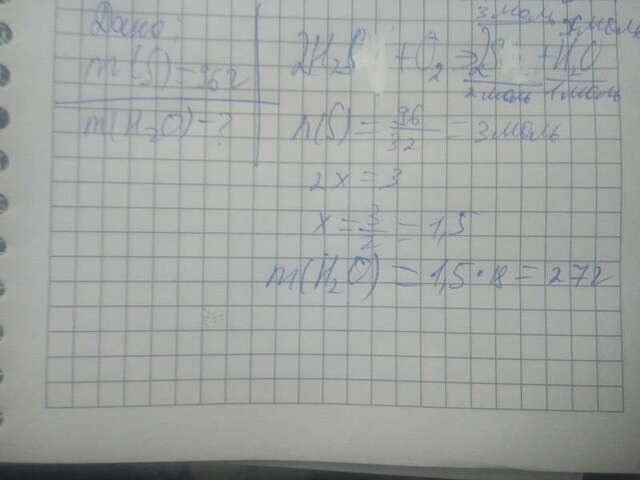 Дано:
m(S)=96г
m(H₂O)-?
3 моль x моль
2H₂S + O₂ → 2S + H₂O
2 моль 1 моль
n(S) = 96/32 = 3 моль
2x = 3
x = 3/2 = 1,5
m(H₂O) = 1,5 · 18 = 27г